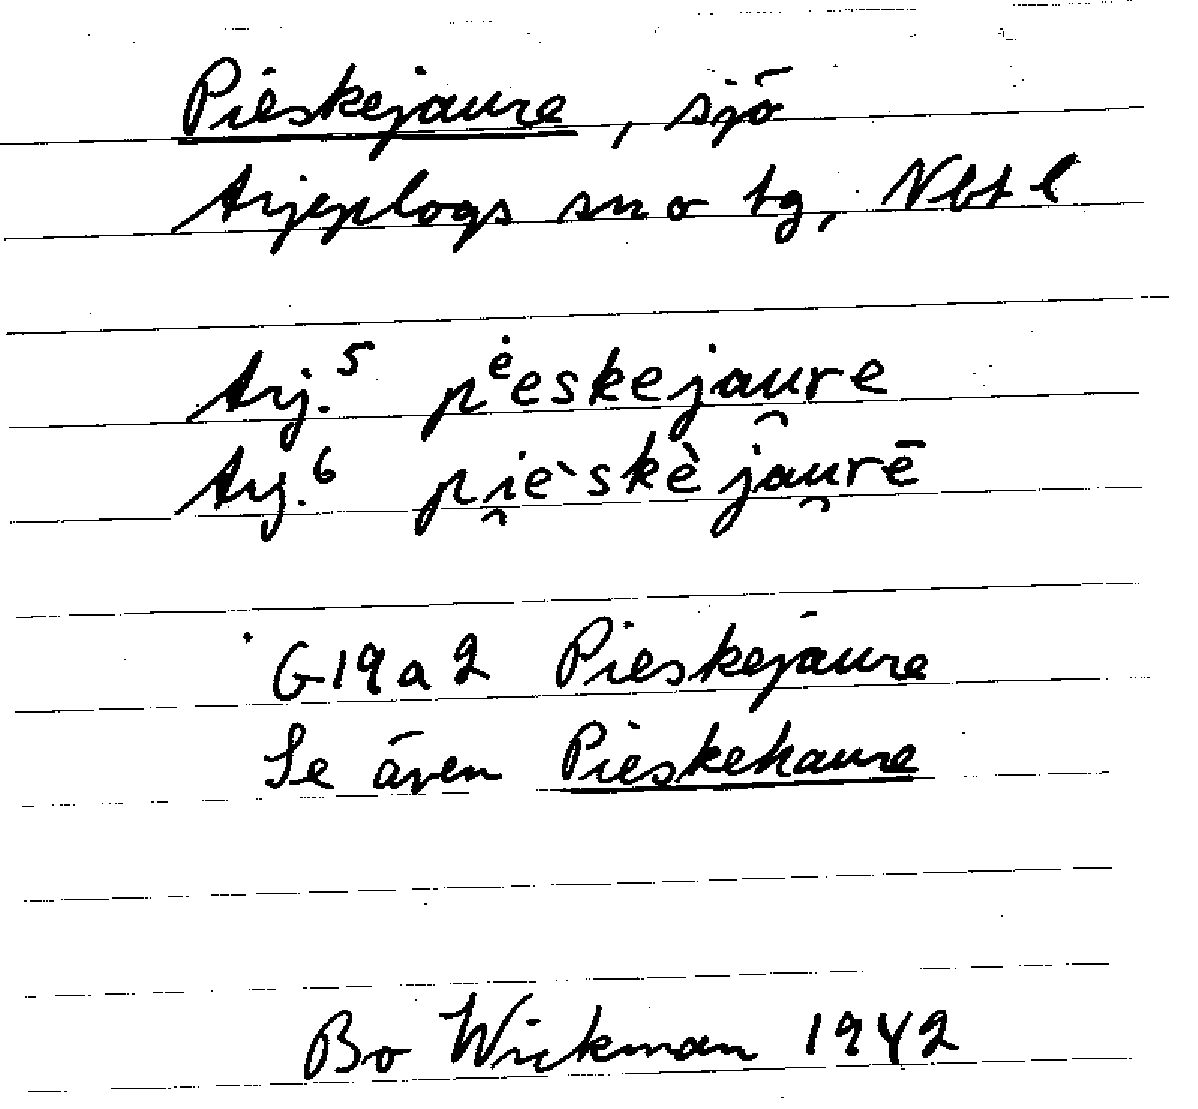 Pieskejaure, sjö
Arjeplogs sn o tg, Nbt l
Arj.⁵ pᵉ̇eskejau̯re
Arj.⁶ pi̯e`skèjau̯rē
G19a2 Pieskejaure
Se även Pieskehaure
Bo Wickman 1942